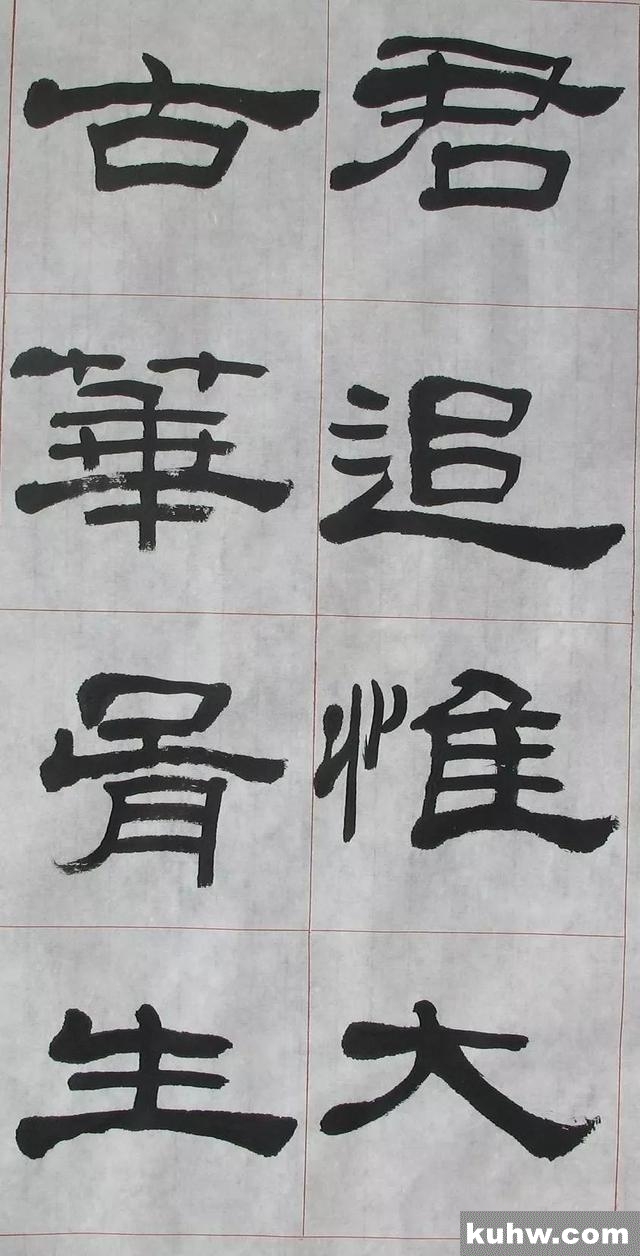 君追惟大
古華胥生
kuhw.com